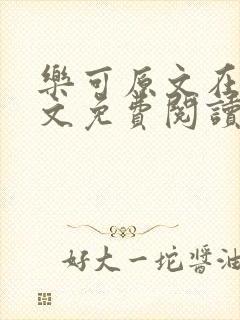 樂可原文在
文免費閱讀
好大一坨醬油